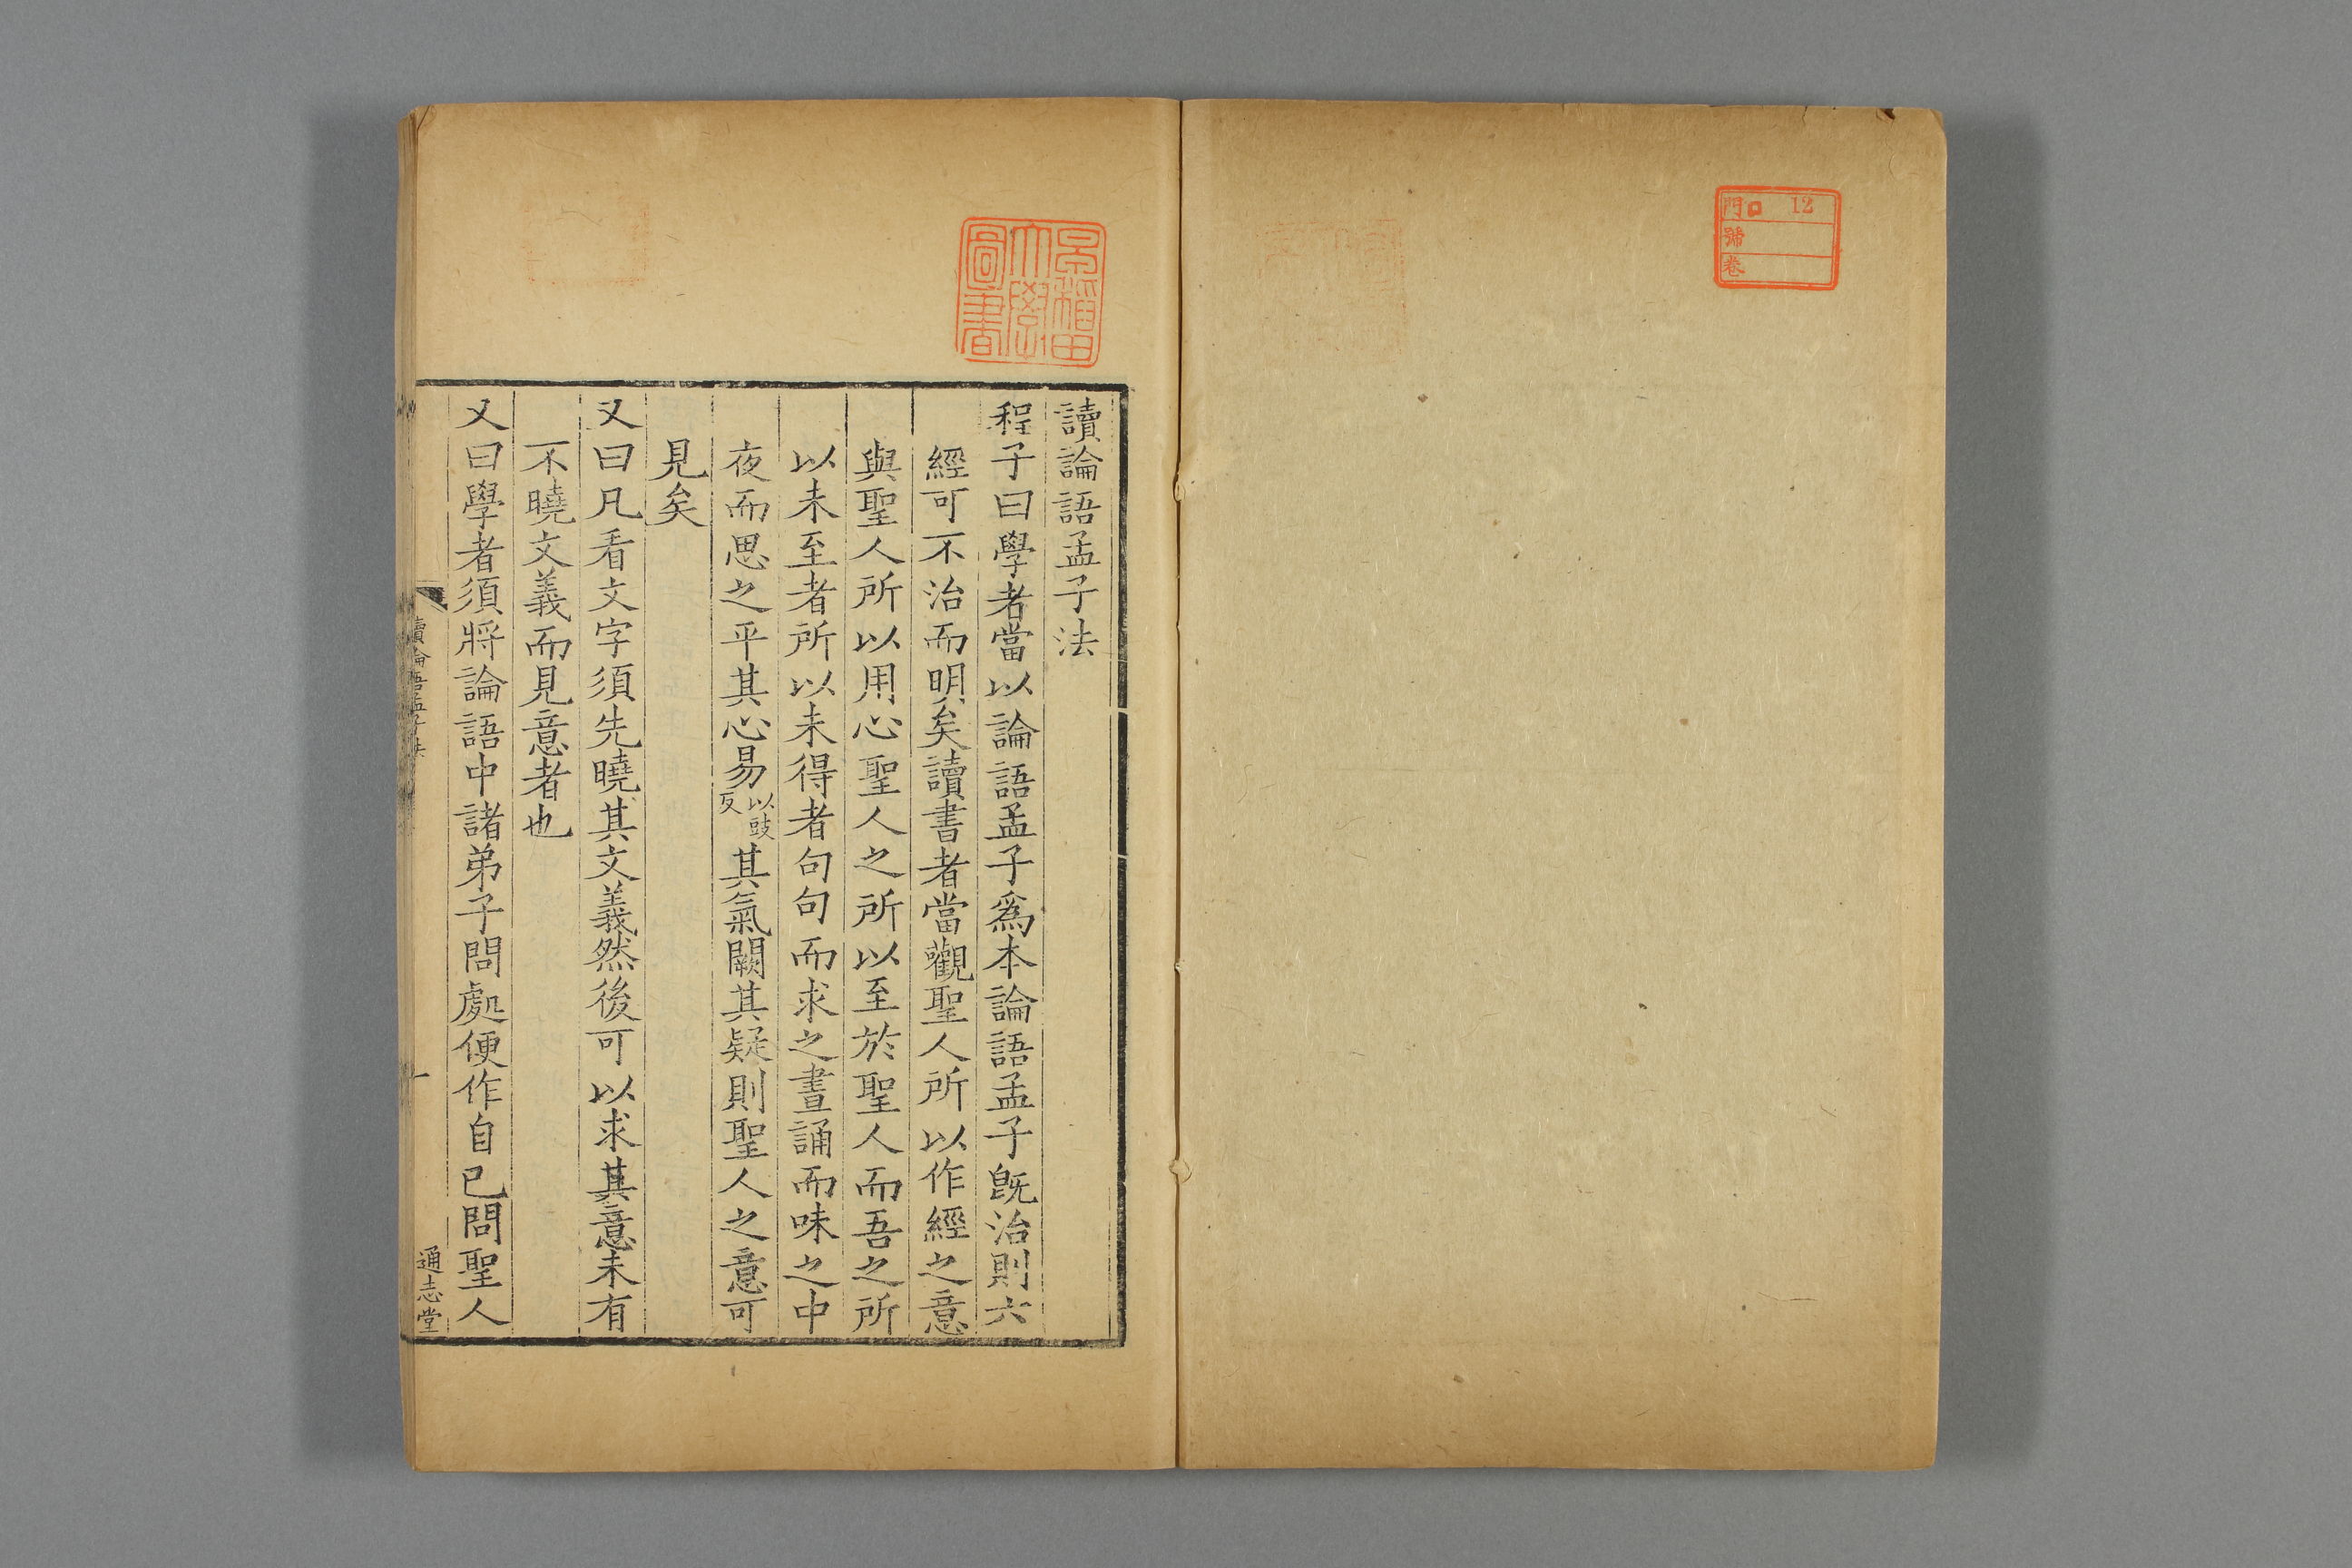 門 口 12
號
卷
早稲田
大學
圖書
讀論語孟子法
程子曰學者當以論語孟子爲本論語孟子旣治則六
經可不治而明矣讀書者當觀聖人所以作經之意
與聖人所以用心聖人之所以至於聖人而吾之所
以未至者所以未得者句句而求之晝誦而味之中
夜而思之平其心易以豉反其氣闕其疑則聖人之意可
見矣
又曰凡看文字須先曉其文義然後可以求其意未有
不曉文義而見意者也
又曰學者須將論語中諸弟子問處便作自已問聖人
讀論語孟子法
一
通志堂